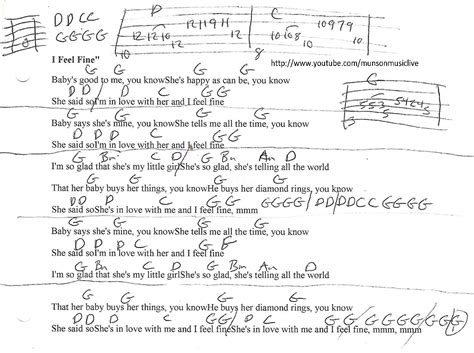 D D C C
G G G G
D
C
12 11 9 11
12 12 10 12
10
10 9 7 9
10 10 8
8
http://www.youtube.com/munsonmusiclive
I Feel Fine"
G G G G
Baby's good to me, you knowShe's happy as can be, you know
D D D C G G
She said soI'm in love with her and I feel fine
G G
Baby says she's mine, you knowShe tells me all the time, you know
D D D C G G
She said soI'm in love with her and I feel fine
G Bm C D G Bm Am D
I'm so glad that she's my little girlShe's so glad, she's telling all the world
G G
That her baby buys her things, you knowHe buys her diamond rings, you know
D D D C G G GGGG/DD/DDCC GGGG
She said soShe's in love with me and I feel fine, mmm
G G
Baby says she's mine, you knowShe tells me all the time, you know
D D D C G
She said soI'm in love with her and I feel fine
G Bm C D G Bm Am D
I'm so glad that she's my little girlShe's so glad, she's telling all the world
G G G G
That her baby buys her things, you knowHe buys her diamond rings, you know
D D D C G G D D C
She said soShe's in love with me and I feel fineShe's in love with me and I feel fine, mmm, mmm